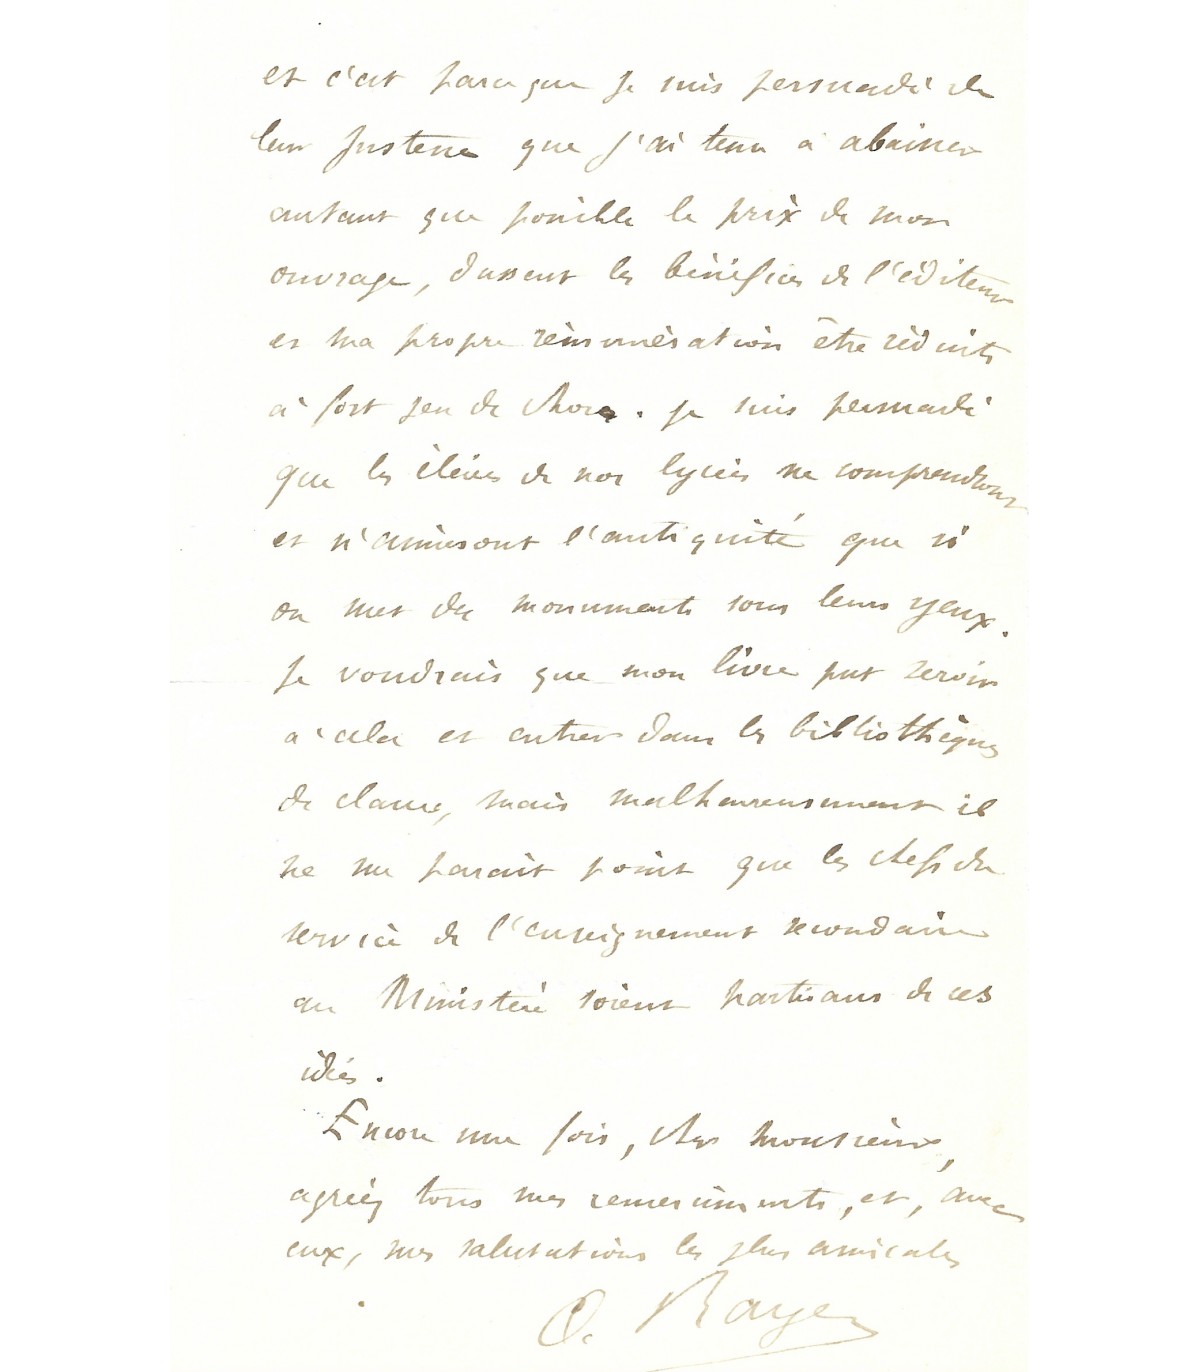 et c'est parce que je suis persuadé de
leur justesse que j'ai tenu à abaisser
autant que possible le prix de mon
ouvrage, dussent les bénéfices de l'éditeur
et ma propre rémunération être réduits
à fort peu de chose. je suis persuadé
que les élèves de nos lycées ne comprendront
et n'aimeront l'antiquité que si
on met des monuments sous leurs yeux.
Je voudrais que mon livre put servir
à cela et entrer dans les bibliothèques
de classe, mais malheureusement il
ne me parait point que les chefs du
service de l'enseignement secondaire
au Ministère soient partisans de ces
idées.
Encore une fois, cher monsieur,
agréez tous mes remerciements, et, avec
eux, mes salutations les plus amicales
O. Rayet